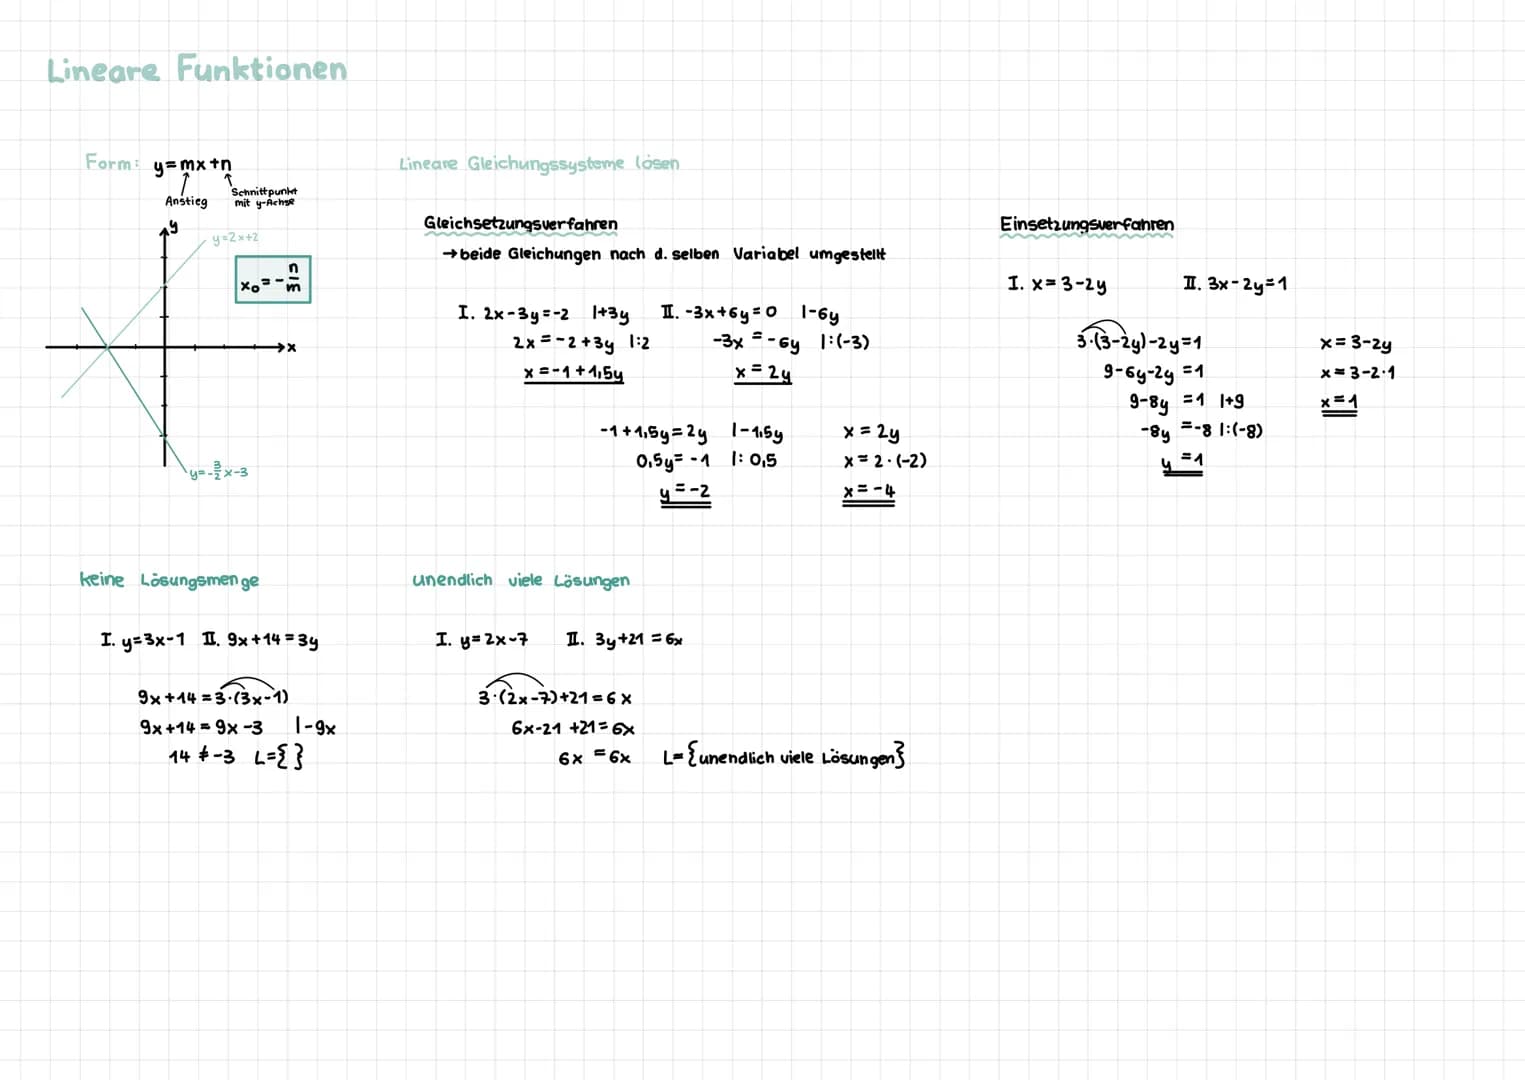 Lineare Funktionen
Form: y=mx+n
Anstieg
Schnittpunkt
mit y-Achse
y
y=2x+2
x₀=-n/m
x
y=-3/2x-3
Lineare Gleichungssysteme lösen
Gleichsetzungsverfahren
→beide Gleichungen nach d. selben Variabel umgestellt
I. 2x-3y=-2 |+3y II. -3x+6y=0 |-6y
2x=-2+3y |:2 -3x=-6y |:(-3)
x=-1+1,5y x=2y
-1+1,5y=2y |-1,5y x=2y
0,5y=-1 |:0,5 x=2·(-2)
y=-2 x=-4
Einsetzungsverfahren
I. x=3-2y II. 3x-2y=1
3·(3-2y)-2y=1 x=3-2y
9-6y-2y=1 x=3-2·1
9-8y=1 |+9 x=1
-8y=-8 |:(-8)
y=1
keine Lösungsmenge
I. y=3x-1 II. 9x+14=3y
9x+14=3·(3x-1)
9x+14=9x-3 |-9x
14≠-3 L={}
unendlich viele Lösungen
I. y=2x-7 II. 3y+21=6x
3·(2x-7)+21=6x
6x-21+21=6x
6x=6x L={unendlich viele Lösungen}